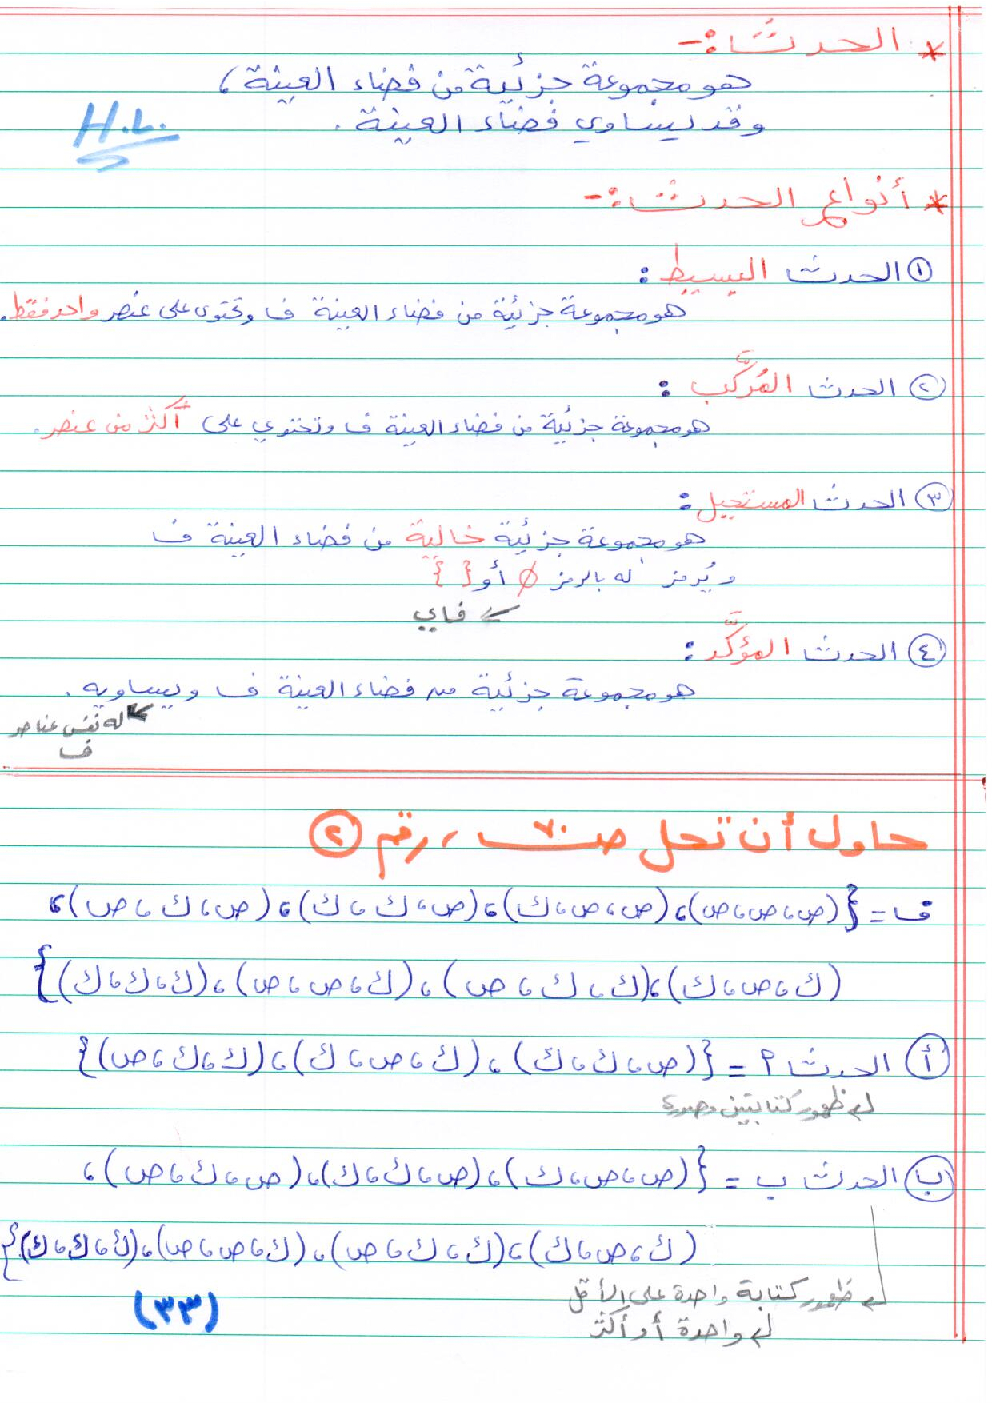 * الحدث :-
هو مجموعة جزئية من فضاء العينة ،
وقد يساوي فضاء العينة .
H.L.
* أنواع الحدث :-
① الحدث البسيط :
هو مجموعة جزئية من فضاء العينة ف وتحتوى على عنصر واحد فقط .
② الحدث المُركَّب :
هو مجموعة جزئية من فضاء العينة ف وتحتوي على أكثر من عنصر .
③ الحدث المستحيل :
هو مجموعة جزئية خالية من فضاء العينة ف
ويُرمز له بالرمز ∅ أو { }
فاي
④ الحدث المؤكَّد :
هو مجموعة جزئية من فضاء العينة ف ويساويه .
له نفس عناصر
ف
حاول أن تحل ص ٧٠ ، رقم ②
ف = { (ص،ص،ص) ، (ص،ص،ك) ، (ص،ك،ك) ، (ص،ك،ص) ،
(ك،ص،ك) ، (ك،ك،ص) ، (ك،ص،ص) ، (ك،ك،ك) }
أ الحدث ٢ = { (ص،ك،ك) ، (ك،ص،ك) ، (ك،ك،ص) }
ظهور كتابتين وصورة
ب الحدث ب = { (ص،ص،ك) ، (ص،ك،ك) ، (ص،ك،ص) ،
(ك،ص،ك) ، (ك،ك،ص) ، (ك،ص،ص) ، (ك،ك،ك) }
ظهور كتابة واحدة على الأقل
واحدة أو أكثر
(٣٣)